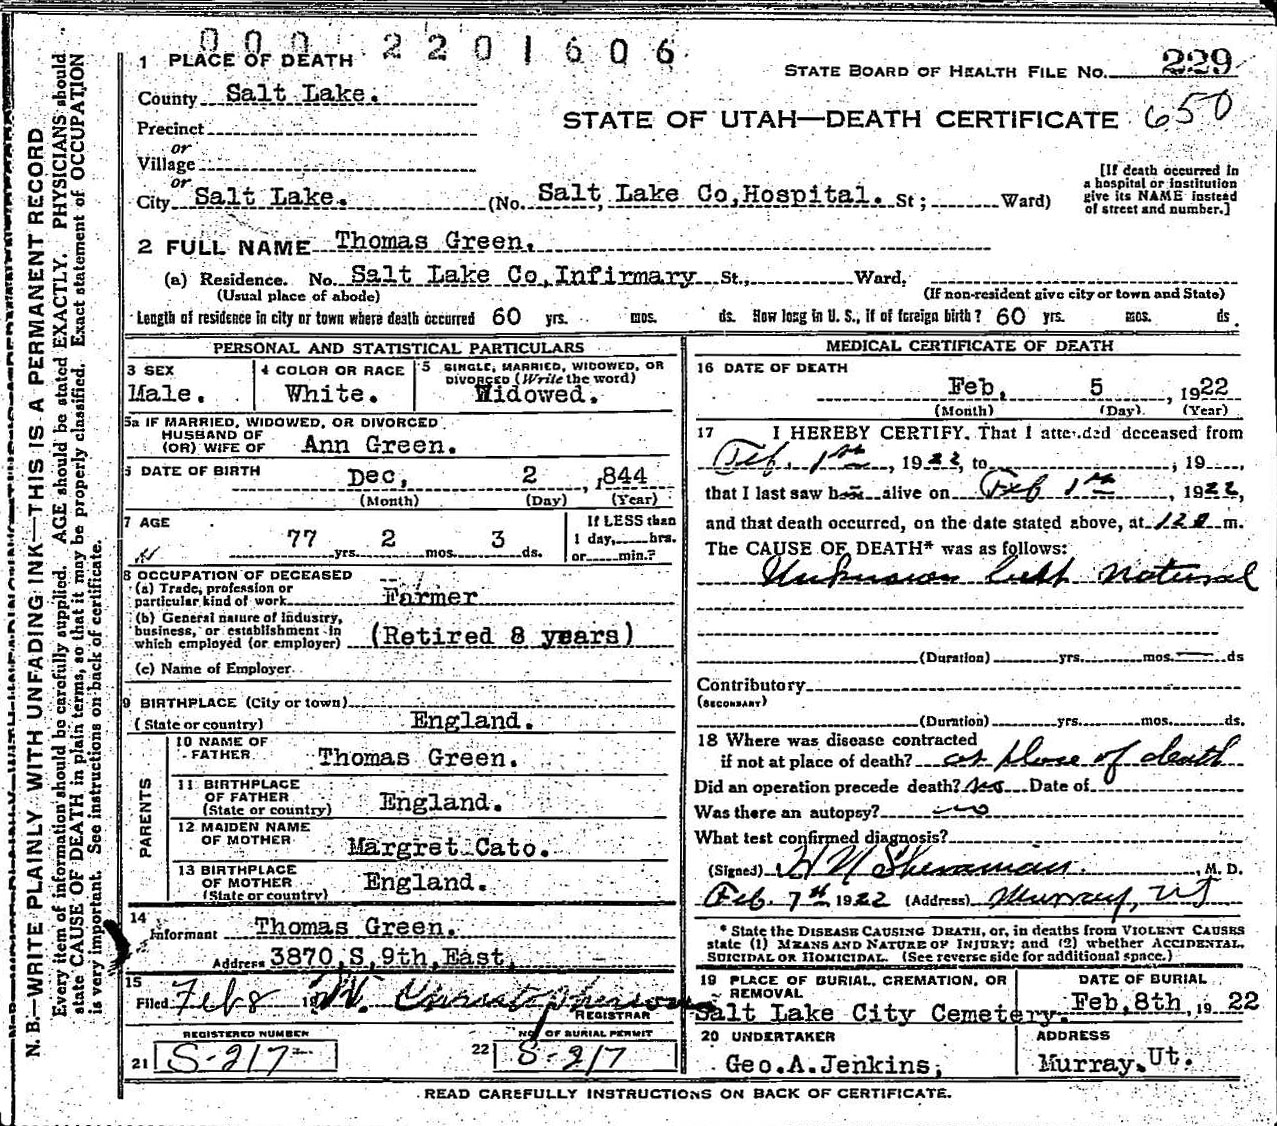 0002201606
1 PLACE OF DEATH
STATE BOARD OF HEALTH FILE No. 229
County Salt Lake.
STATE OF UTAH—DEATH CERTIFICATE 650
Precinct
or
Village
or
City Salt Lake. (No. Salt Lake Co, Hospital. St; Ward)
[If death occurred in
a hospital or institution
give its NAME instead
of street and number.]
2 FULL NAME Thomas Green.
(a) Residence. No. Salt Lake Co, Infirmary St., Ward.
(Usual place of abode) (If non-resident give city or town and State)
Length of residence in city or town where death occurred 60 yrs. mos. ds. How long in U. S., if of foreign birth? 60 yrs. mos. ds.
PERSONAL AND STATISTICAL PARTICULARS
3 SEX
Male.
4 COLOR OR RACE
White.
5 SINGLE, MARRIED, WIDOWED, OR
DIVORCED (Write the word)
Widowed.
5a IF MARRIED, WIDOWED, OR DIVORCED
HUSBAND OF
(OR) WIFE OF Ann Green.
6 DATE OF BIRTH Dec, 2, 1844
(Month) (Day) (Year)
7 AGE
77 yrs. 2 mos. 3 ds.
If LESS than
1 day, hrs.
or min.?
8 OCCUPATION OF DECEASED
(a) Trade, profession or
particular kind of work Farmer
(b) General nature of industry,
business, or establishment in
which employed (or employer) (Retired 8 years)
(c) Name of Employer
9 BIRTHPLACE (City or town)
(State or country) England.
PARENTS
10 NAME OF
FATHER Thomas Green.
11 BIRTHPLACE
OF FATHER
(State or country) England.
12 MAIDEN NAME
OF MOTHER Margret Cato.
13 BIRTHPLACE
OF MOTHER
(State or country) England.
14
Informant Thomas Green.
Address 3870, S, 9th, East,
15
Filed Feb 8 19 W. Christopherson
REGISTRAR
REGISTERED NUMBER
21 S-217
NO. OF BURIAL PERMIT
22 S-217
MEDICAL CERTIFICATE OF DEATH
16 DATE OF DEATH
Feb, 5, 1922
(Month) (Day). (Year)
17 I HEREBY CERTIFY, That I attended deceased from
Feb. 1st, 1922, to , 19 ,
that I last saw him alive on Feb 1st, 1922,
and that death occurred, on the date stated above, at m.
The CAUSE OF DEATH* was as follows:
Unknown but natural
(Duration) yrs. mos. ds
Contributory
(SECONDARY)
(Duration) yrs. mos. ds.
18 Where was disease contracted
if not at place of death? at place of death
Did an operation precede death? no Date of
Was there an autopsy? no
What test confirmed diagnosis?
(Signed) H N Sheranian, M. D.
Feb. 7th 1922 (Address) Murray, UT
* State the DISEASE CAUSING DEATH, or, in deaths from VIOLENT CAUSES
state (1) MEANS AND NATURE OF INJURY; and (2) whether ACCIDENTAL,
SUICIDAL OR HOMICIDAL. (See reverse side for additional space.)
19 PLACE OF BURIAL, CREMATION, OR
REMOVAL
Salt Lake City Cemetery.
DATE OF BURIAL
Feb, 8th, 1922
20 UNDERTAKER
Geo. A. Jenkins,
ADDRESS
Murray. Ut.
READ CAREFULLY INSTRUCTIONS ON BACK OF CERTIFICATE.
N. B.—WRITE PLAINLY WITH UNFADING INK—THIS IS A PERMANENT RECORD
Every item of information should be carefully supplied. AGE should be stated EXACTLY. PHYSICIANS should
state CAUSE OF DEATH in plain terms, so that it may be properly classified. Exact statement of OCCUPATION
is very important. See instructions on back of certificate.